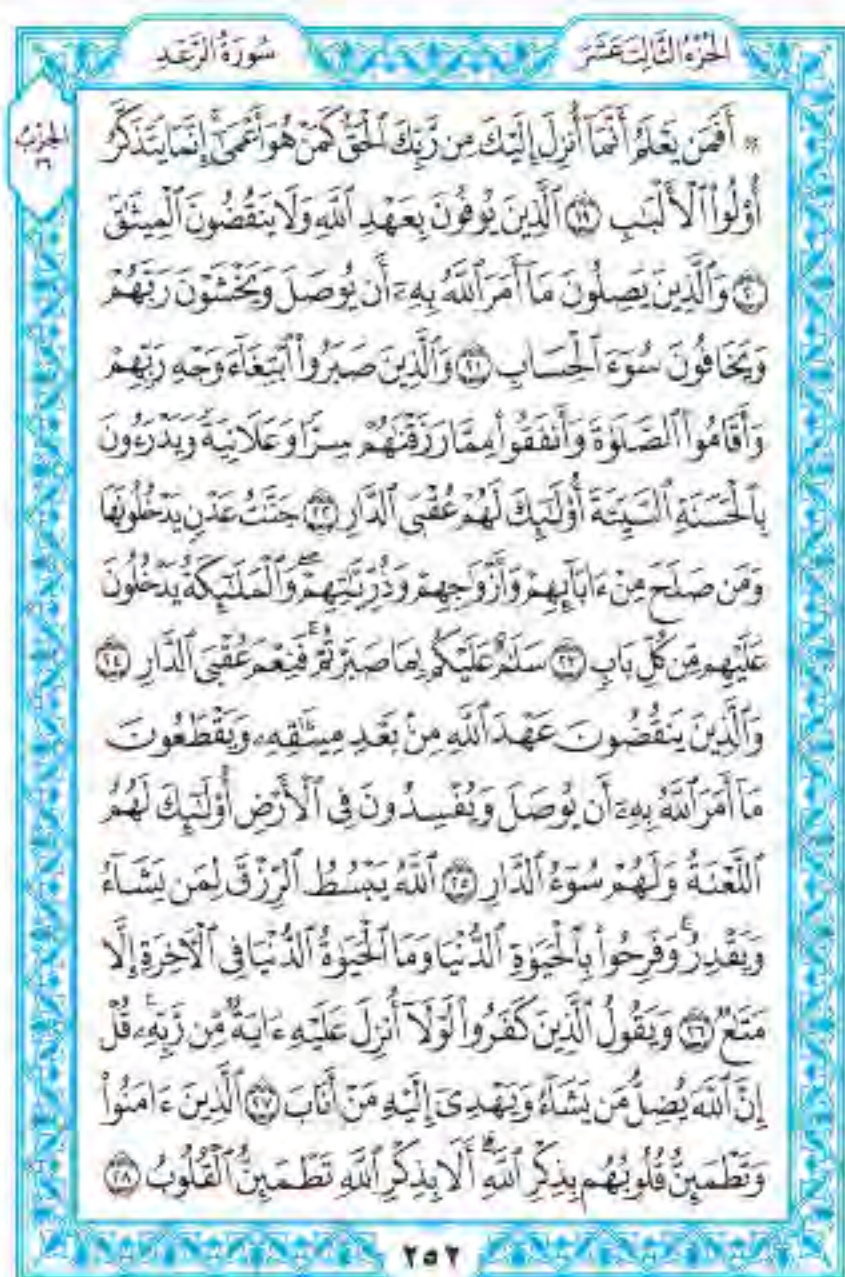 الجزء الثالث عشر
سورة الرعد
الحزب
٢٦
۞ أَفَمَن يَعْلَمُ أَنَّمَآ أُنزِلَ إِلَيْكَ مِن رَّبِّكَ ٱلْحَقُّ كَمَنْ هُوَ أَعْمَىٰٓ ۚ إِنَّمَا يَتَذَكَّرُ
أُوْلُواْ ٱلْأَلْبَٰبِ ١٩ ٱلَّذِينَ يُوفُونَ بِعَهْدِ ٱللَّهِ وَلَا يَنقُضُونَ ٱلْمِيثَٰقَ
٢٠ وَٱلَّذِينَ يَصِلُونَ مَآ أَمَرَ ٱللَّهُ بِهِۦٓ أَن يُوصَلَ وَيَخْشَوْنَ رَبَّهُمْ
وَيَخَافُونَ سُوٓءَ ٱلْحِسَابِ ٢١ وَٱلَّذِينَ صَبَرُواْ ٱبْتِغَآءَ وَجْهِ رَبِّهِمْ
وَأَقَامُواْ ٱلصَّلَوٰةَ وَأَنفَقُواْ مِمَّا رَزَقْنَٰهُمْ سِرًّا وَعَلَانِيَةً وَيَدْرَءُونَ
بِٱلْحَسَنَةِ ٱلسَّيِّئَةَ أُوْلَٰٓئِكَ لَهُمْ عُقْبَى ٱلدَّارِ ٢٢ جَنَّٰتُ عَدْنٍ يَدْخُلُونَهَا
وَمَن صَلَحَ مِنْ ءَابَآئِهِمْ وَأَزْوَٰجِهِمْ وَذُرِّيَّٰتِهِمْ ۖ وَٱلْمَلَٰٓئِكَةُ يَدْخُلُونَ
عَلَيْهِم مِّن كُلِّ بَابٍ ٢٣ سَلَٰمٌ عَلَيْكُم بِمَا صَبَرْتُمْ ۚ فَنِعْمَ عُقْبَى ٱلدَّارِ ٢٤
وَٱلَّذِينَ يَنقُضُونَ عَهْدَ ٱللَّهِ مِنۢ بَعْدِ مِيثَٰقِهِۦ وَيَقْطَعُونَ
مَآ أَمَرَ ٱللَّهُ بِهِۦٓ أَن يُوصَلَ وَيُفْسِدُونَ فِى ٱلْأَرْضِ ۙ أُوْلَٰٓئِكَ لَهُمُ
ٱللَّعْنَةُ وَلَهُمْ سُوٓءُ ٱلدَّارِ ٢٥ ٱللَّهُ يَبْسُطُ ٱلرِّزْقَ لِمَن يَشَآءُ
وَيَقْدِرُ ۚ وَفَرِحُواْ بِٱلْحَيَوٰةِ ٱلدُّنْيَا وَمَا ٱلْحَيَوٰةُ ٱلدُّنْيَا فِى ٱلْأَخِرَةِ إِلَّا
مَتَٰعٌ ٢٦ وَيَقُولُ ٱلَّذِينَ كَفَرُواْ لَوْلَآ أُنزِلَ عَلَيْهِ ءَايَةٌ مِّن رَّبِّهِۦ ۗ قُلْ
إِنَّ ٱللَّهَ يُضِلُّ مَن يَشَآءُ وَيَهْدِىٓ إِلَيْهِ مَنْ أَنَابَ ٢٧ ٱلَّذِينَ ءَامَنُواْ
وَتَطْمَئِنُّ قُلُوبُهُم بِذِكْرِ ٱللَّهِ ۗ أَلَا بِذِكْرِ ٱللَّهِ تَطْمَئِنُّ ٱلْقُلُوبُ ٢٨
٢٥٢